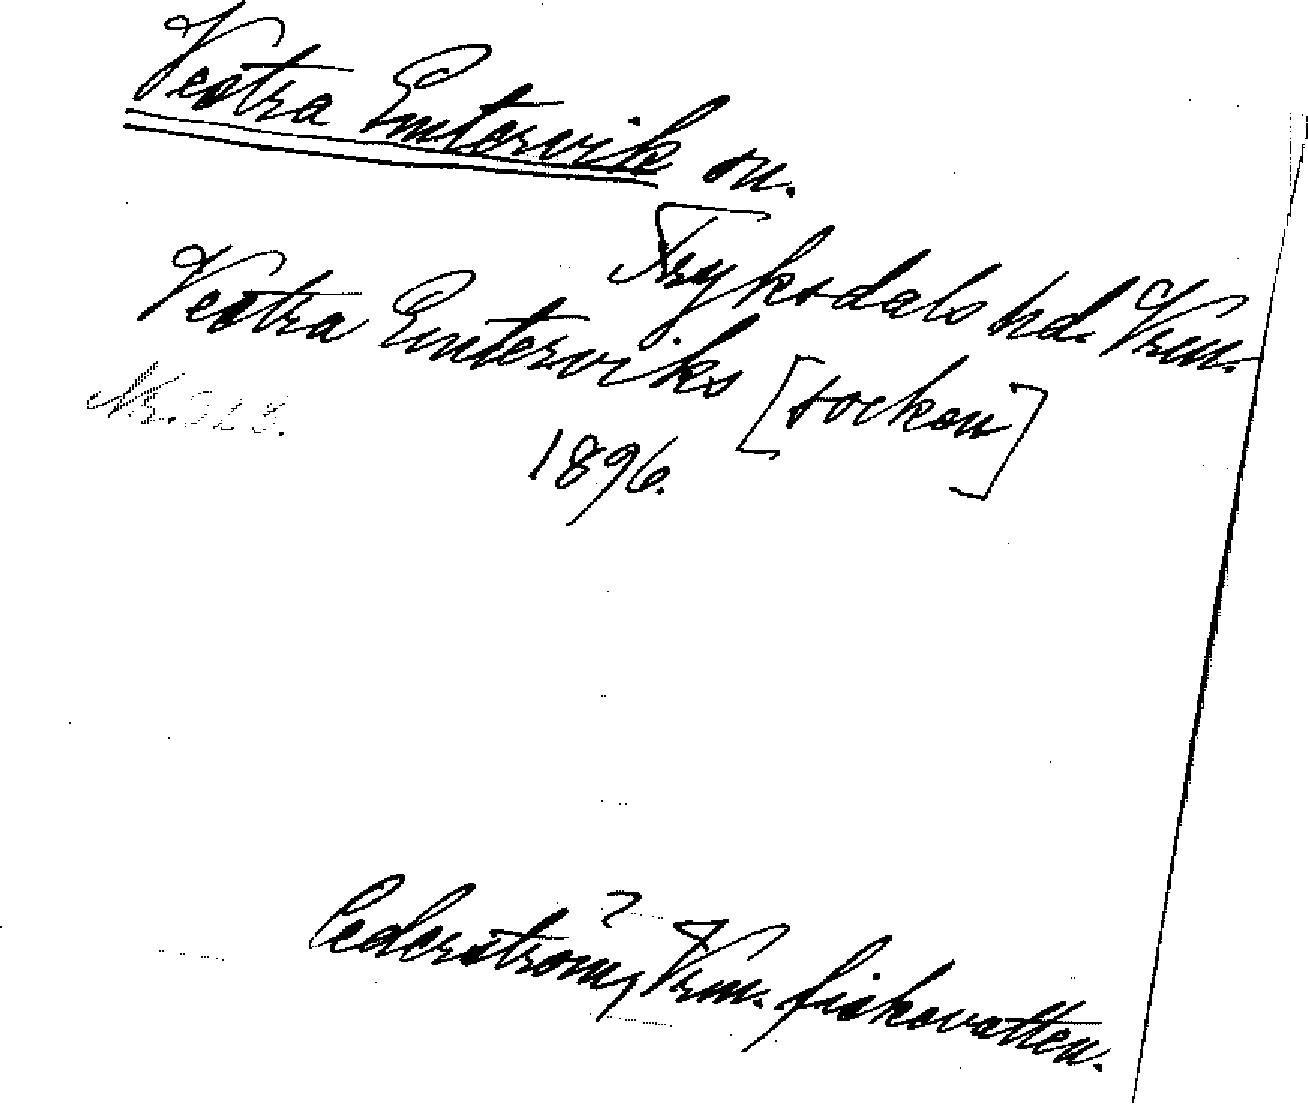 Vestra Emtervik sn.
Fryksdals hd. Vrm.
Vestra Emterviks [socken]
1896.
Cederström, Vrm. fiskevatten.